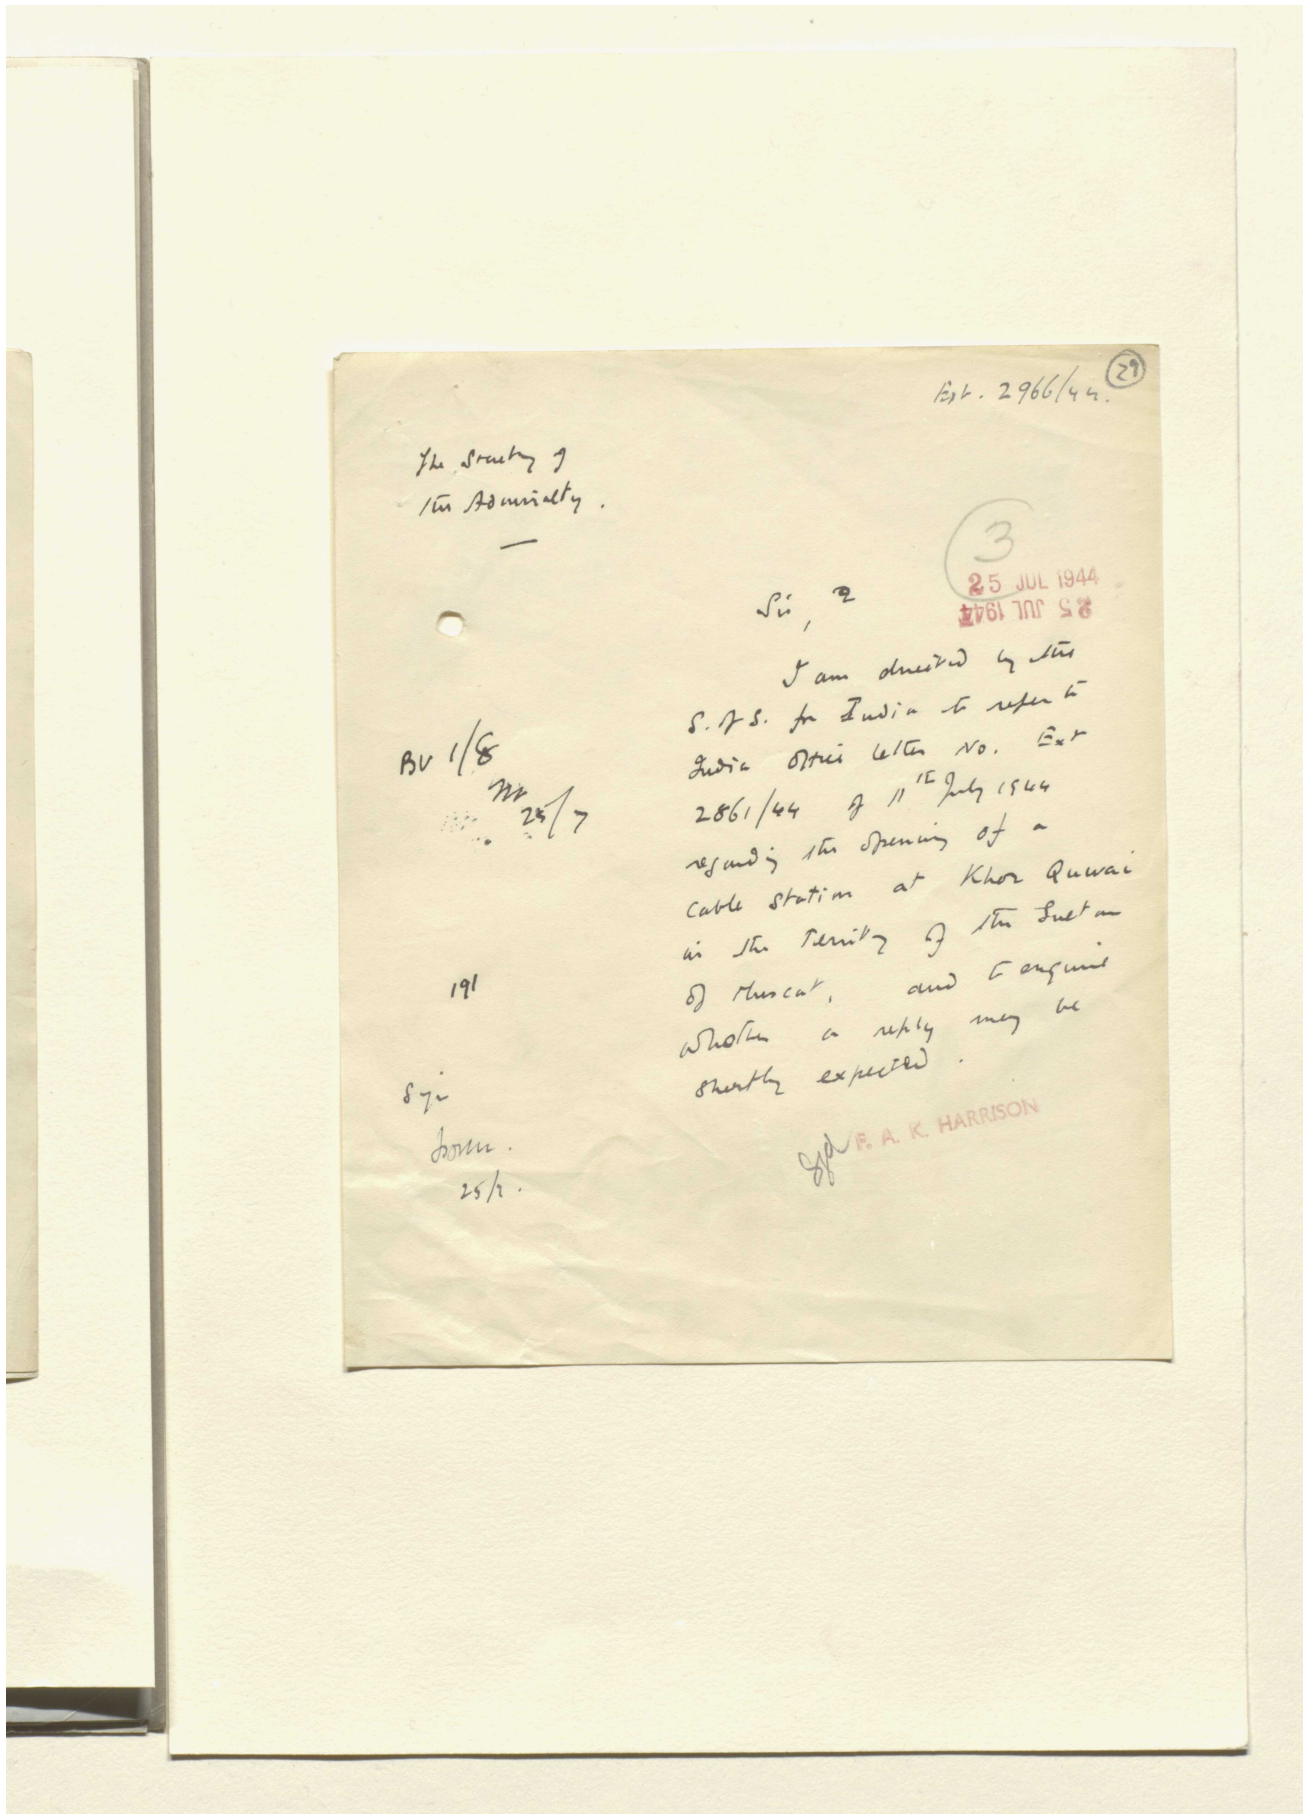 29
Ext. 2966/44.
The Secretary of
the Admiralty.
3
25 JUL 1944
25 JUL 1944
Sir,
I am directed by the
S. of S. for India to refer to
India Office letter No. Ext
2861/44 of 11th July 1944
regarding the opening of a
cable station at Khor Quwai
in the Territory of the Sultan
of Muscat, and to enquire
whether a reply may be
shortly expected.
BU 1/8
25/7
191
25/7.
Sgd F. A. K. HARRISON